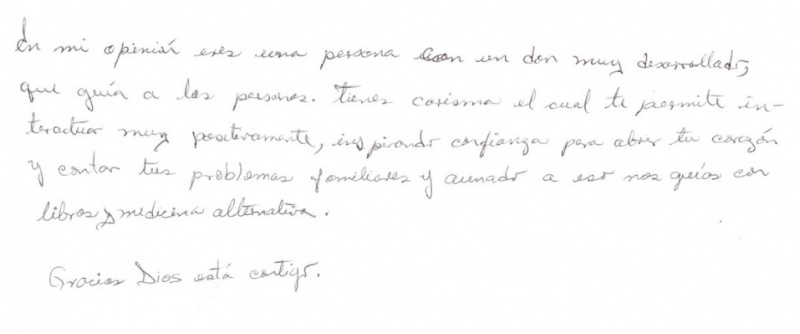 En mi opinión eres una persona con un don muy desarrollado,
que guía a las personas. Tienes carisma el cual te permite in-
teractuar muy positivamente, inspirando confianza para abrir tu corazón
y contar tus problemas familiares y aunado a eso nos guías con
libros y medicina alternativa.
Gracias Dios está contigo.